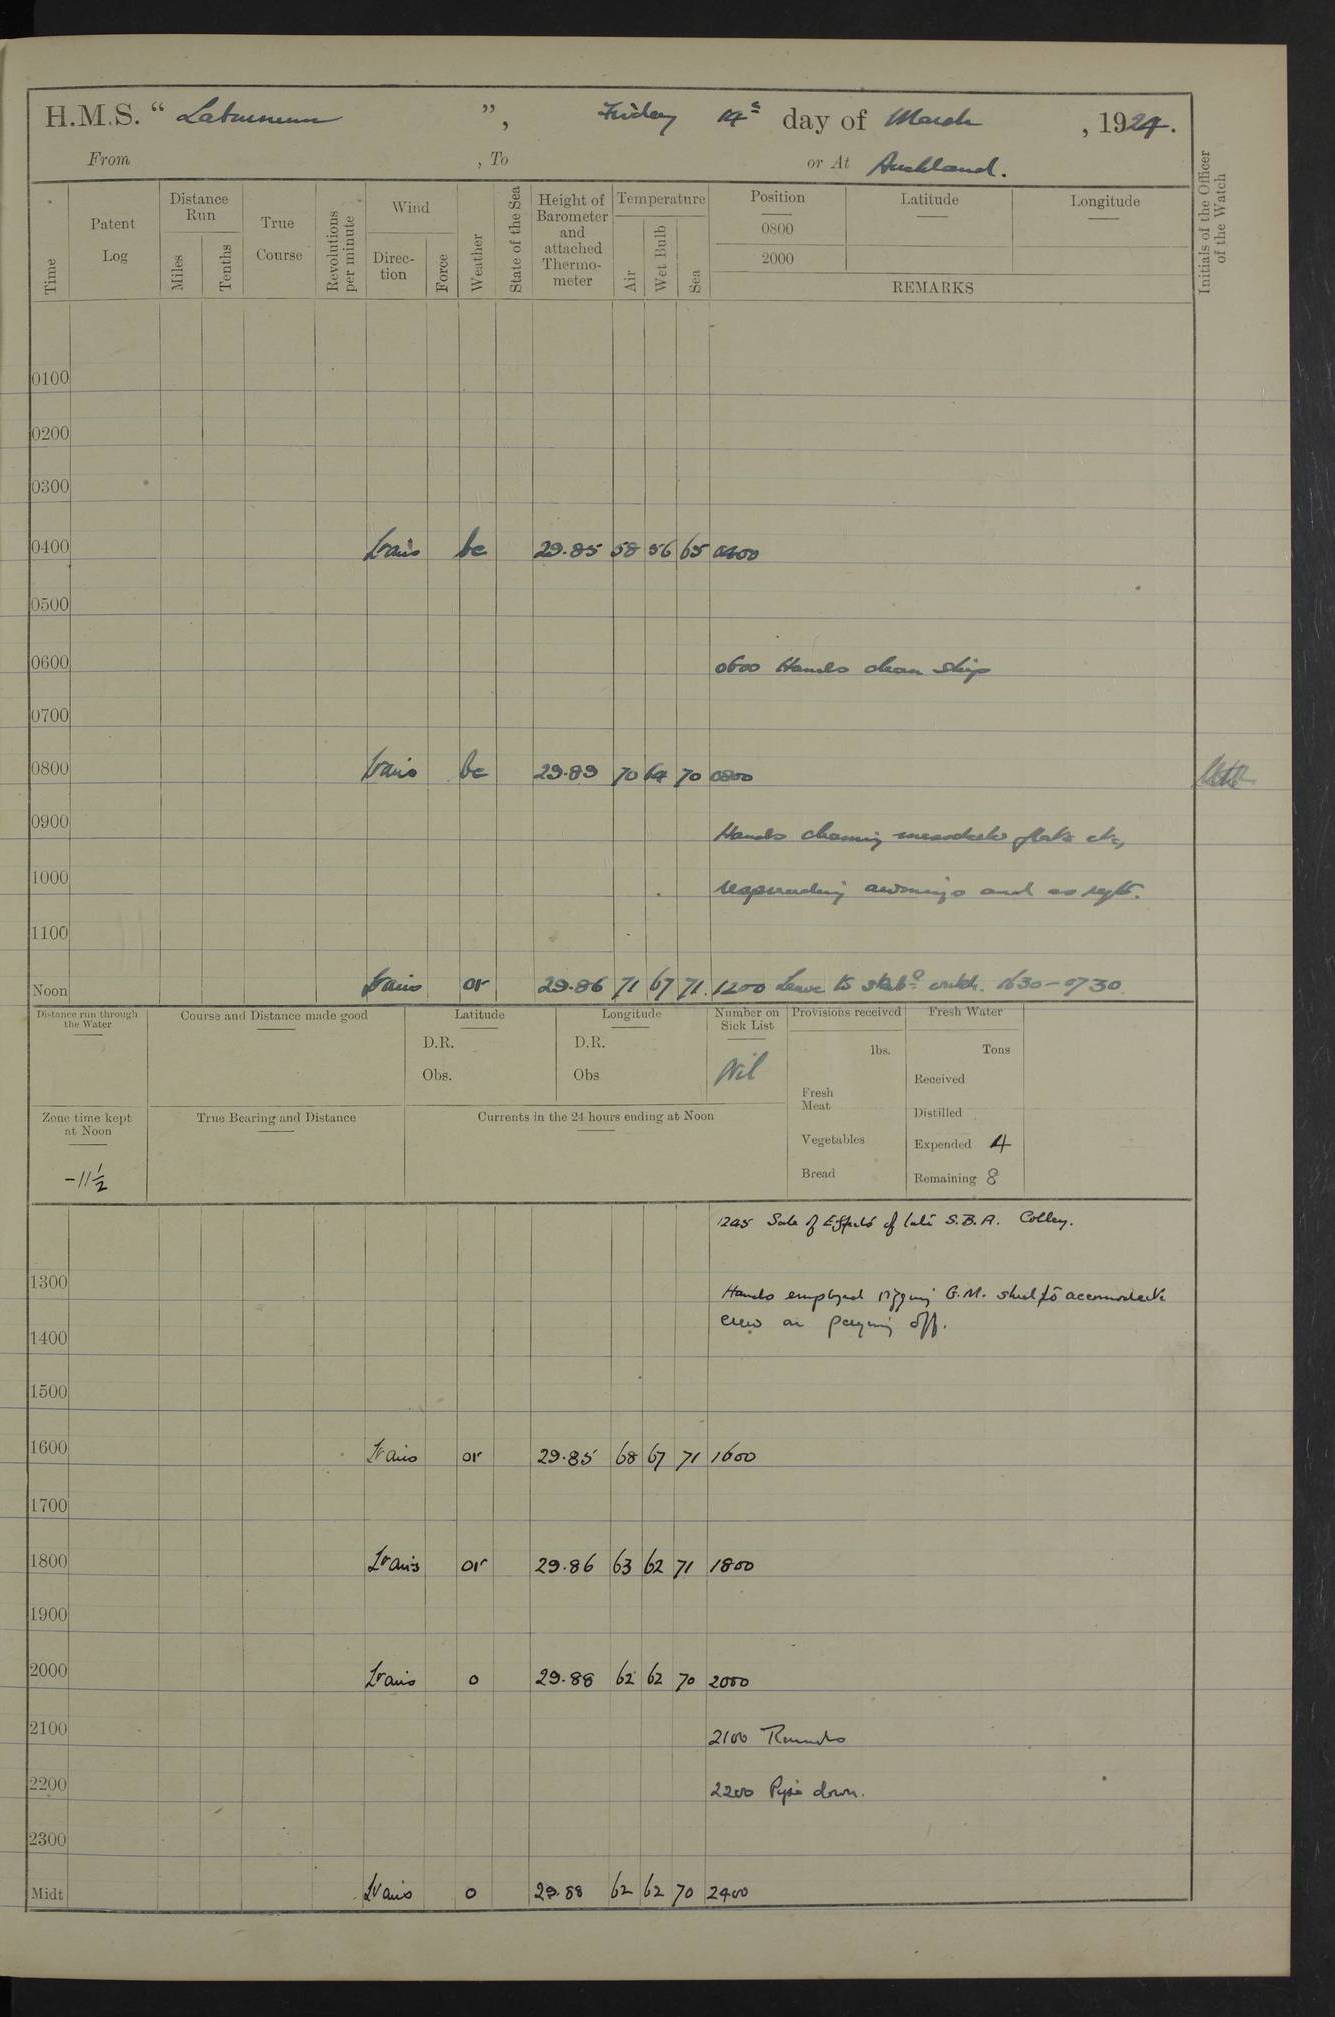 H.M.S. “ Laburnum ”, Friday 14th day of March , 1924.
From , To or At Auckland.
Time
Patent Log
Distance Run
Miles
Tenths
True Course
Revolutions per minute
Wind
Direction
Force
Weather
State of the Sea
Height of Barometer and attached Thermometer
Temperature
Air
Wet Bulb
Sea
Position Latitude Longitude
0800
2000
REMARKS
Initials of the Officer of the Watch
0100
0200
0300
0400 bc 29.85 58 56 65 0400
0500
0600 0600 Hands clean ship
0700
0800 bc 29.89 70 64 70 0800
0900 Hands cleaning messdecks flats etc,
1000 respreading awnings and as reqte.
1100
Noon or 29.86 71 67 71 1200 Leave to watch. 1630-0730
Distance run through the Water
Course and Distance made good
Latitude
D.R.
Obs.
Longitude
D.R.
Obs
Number on Sick List
Nil
Provisions received
lbs.
Fresh Meat
Vegetables
Bread
Fresh Water
Tons
Received
Distilled
Expended 4
Remaining 8
Zone time kept at Noon
-11½
True Bearing and Distance
Currents in the 24 hours ending at Noon
1245 Sale of Effects of late S.B.A. Colley.
1300 Hands employed rigging G.M. shed to accommodate
crew on paying off.
1400
1500
1600 or 29.85 68 67 71 1600
1700
1800 or 29.86 63 62 71 1800
1900
2000 o 29.88 62 62 70 2000
2100 2100 Rounds
2200 2200 Pipe down.
2300
Midt o 29.88 62 62 70 2400